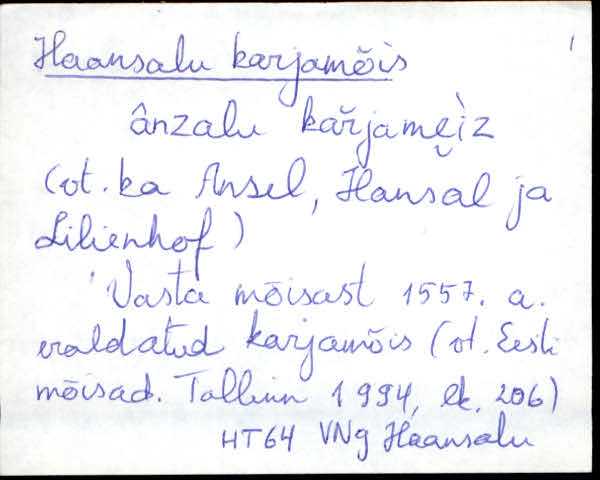 Haansalu karjamõis
1
ânzalu kăŕjamẹ̮ìz
(vt. ka Ansel, Hansal ja
Lilienhof)
Vasta mõisast 1557. a.
eraldatud karjamõis (vt. Eesti
mõisad. Tallinn 1994, lk. 206)
HT64 VNg Haansalu